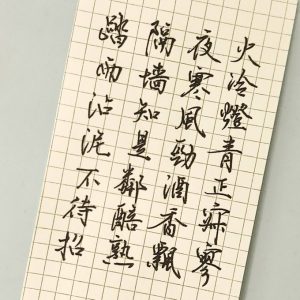 火冷燈青正寂寥
夜寒風勁酒香飄
隔墻知是鄰醅熟
踏雨沾泥不待招